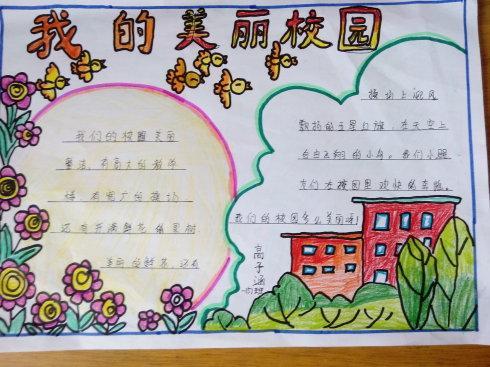 我的美丽校园
我们的校园美丽
整洁，有高大的教学
楼，有宽广的操场
还有开满鲜花的果树
美丽的鲜花，还有
操场上迎风
飘扬的五星红旗，在天空上
自由飞翔的小鸟。我们小朋
友们在校园里欢快的
我们的校园多么美丽呀！
高子涵